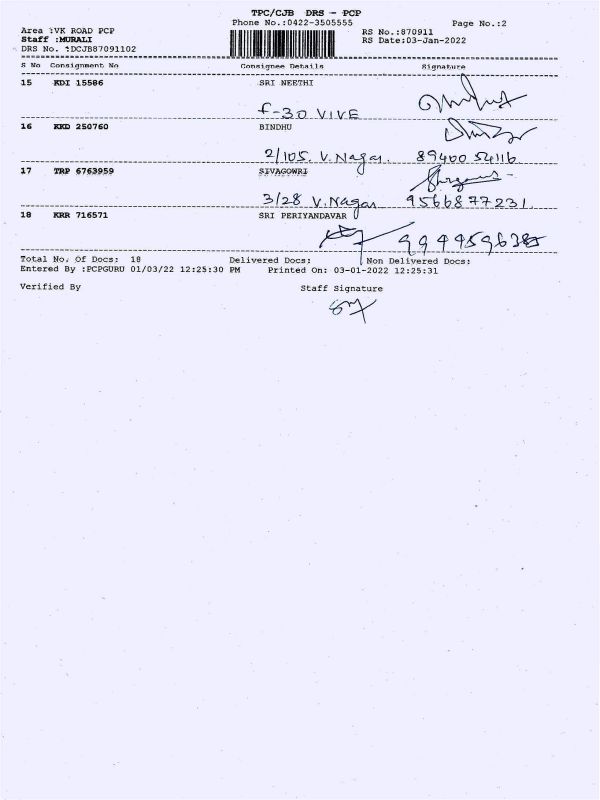 TPC/CJB DRS - PCP
Phone No.:0422-3505555 Page No.:2
Area :VK ROAD PCP RS No.:870911
Staff :MURALI RS Date:03-Jan-2022
DRS No. :DCJB87091102
S No Consignment No Consignee Details Signature
15 KDI 15586 SRI NEETHI
F-30 VIVE
16 KKD 250760 BINDHU
2/105. V.Nagar. 89400 54116
17 TRP 6763959 SIVAGOWRI
3/28 V.Nagar 9566877231.
18 KRR 716571 SRI PERIYANDAVAR
Total No. Of Docs: 18 Delivered Docs: Non Delivered Docs:
Entered By :PCPGURU 01/03/22 12:25:30 PM Printed On: 03-01-2022 12:25:31
Verified By Staff Signature